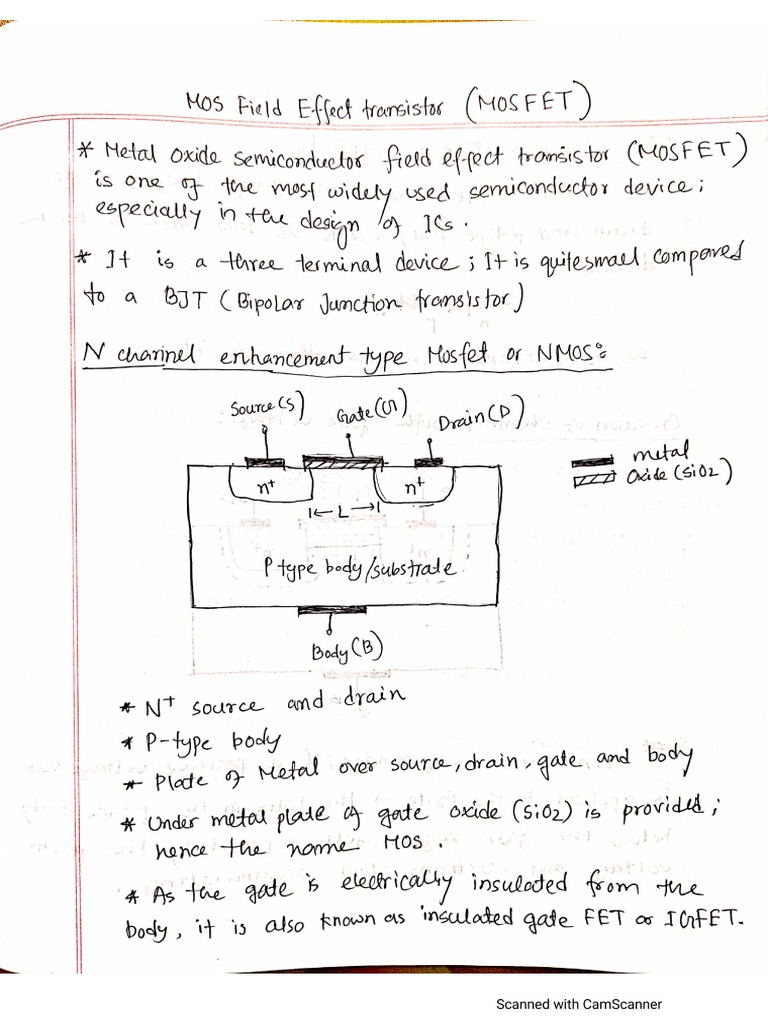 MOS Field Effect transistor (MOSFET)
* Metal Oxide semiconductor field effect transistor (MOSFET)
is one of the most widely used semiconductor device;
especially in the design of ICs.
* It is a three terminal device; It is quite small compared
to a BJT (Bipolar Junction transistor)
N channel enhancement type Mosfet or NMOS:
Source(S) Gate(G) Drain(D)
metal
Oxide (SiO2)
n+ n+
|← L →|
P type body/substrate
Body(B)
* N+ source and drain
* P-type body
* Plate of Metal over source, drain, gate, and body
* Under metal plate of gate oxide (SiO2) is provided;
hence the name MOS.
* As the gate is electrically insulated from the
body, it is also known as insulated gate FET or IGFET.
Scanned with CamScanner